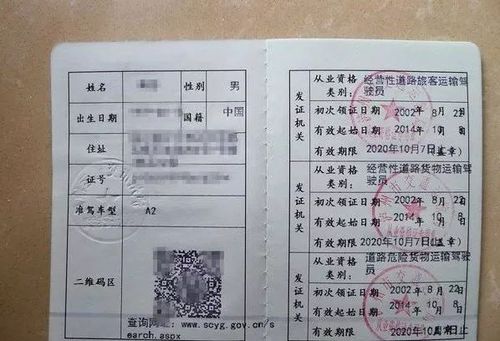 姓名
性别
男
出生日期
国籍
中国
住址
证号
准驾车型
A2
二维码区
查询网址: www.scyg.gov.cn/s
earch.aspx
发证机关
从业资格
类别:
经营性道路旅客运输驾
驶员
初次领证日期 2002年 8月 22日
有效起始日期 2014年 10月 8日
有效期限 2020年10月7日(盖章)
发证机关
从业资格
类别:
经营性道路货物运输驾
驶员
初次领证日期 2002年 8月 22日
有效起始日期 2014年 10月 8日
有效期限 2020年10月7日(盖章)
发证机关
从业资格
类别:
道路危险货物运输驾驶
员
初次领证日期 2002年 8月 22日
有效起始日期 2014年 10月 8日
有效期限